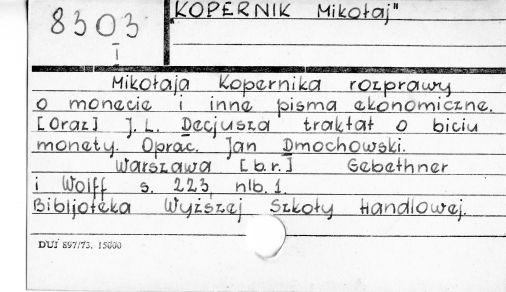 8303
I
"KOPERNIK Mikołaj"
Mikołaja Kopernika rozprawy
o monecie i inne pisma ekonomiczne.
[Oraz] J. L. Decjusza traktat o biciu
monety. Oprac. Jan Dmochowski.
Warszawa [b.r.] Gebethner
i Wolff s. 223, nlb. 1.
Bibljoteka Wyższej Szkoły Handlowej.
DUJ 897/73. 15000